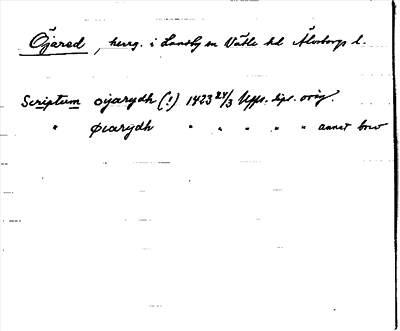 Öjared, herrg. i Landby sn Vättle hd Älvsborgs l.
Scriptum öijarydh (!) 1423 24/3 Upps. dipl. orig.
" øiarydh " " " " " annat brev